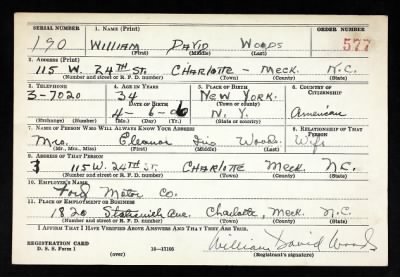 SERIAL NUMBER 1. NAME (Print) ORDER NUMBER
190 WILLIAM DAVID WOODS 577
(First) (Middle) (Last)
2. ADDRESS (Print)
115 W. 24TH ST. CHARLOTTE - MECK. N.C.
(Number and street or R. F. D. number) (Town) (County) (State)
3. TELEPHONE 4. AGE IN YEARS 5. PLACE OF BIRTH 6. COUNTRY OF CITIZENSHIP
3-7020 34 NEW YORK.
DATE OF BIRTH (Town or county)
4-6-06 N.Y. American
(Exchange) (Number) (Mo.) (Day) (Yr.) (State or country)
7. NAME OF PERSON WHO WILL ALWAYS KNOW YOUR ADDRESS 8. RELATIONSHIP OF THAT PERSON
Mrs. Eleanor Woods Wife
(Mr., Mrs., Miss) (First) (Middle) (Last)
9. ADDRESS OF THAT PERSON
115 W. 24TH ST. CHARLOTTE MECK. N.C.
(Number and street or R. F. D. number) (Town) (County) (State)
10. EMPLOYER'S NAME
Ford Motor Co.
11. PLACE OF EMPLOYMENT OR BUSINESS
1820 Statesville Ave. Charlotte, Meck. N.C.
(Number and street or R. F. D. number) (Town) (County) (State)
I AFFIRM THAT I HAVE VERIFIED ABOVE ANSWERS AND THAT THEY ARE TRUE.
REGISTRATION CARD
D. S. S. Form 1 16-17105 William David Woods
(over) (Registrant's signature)